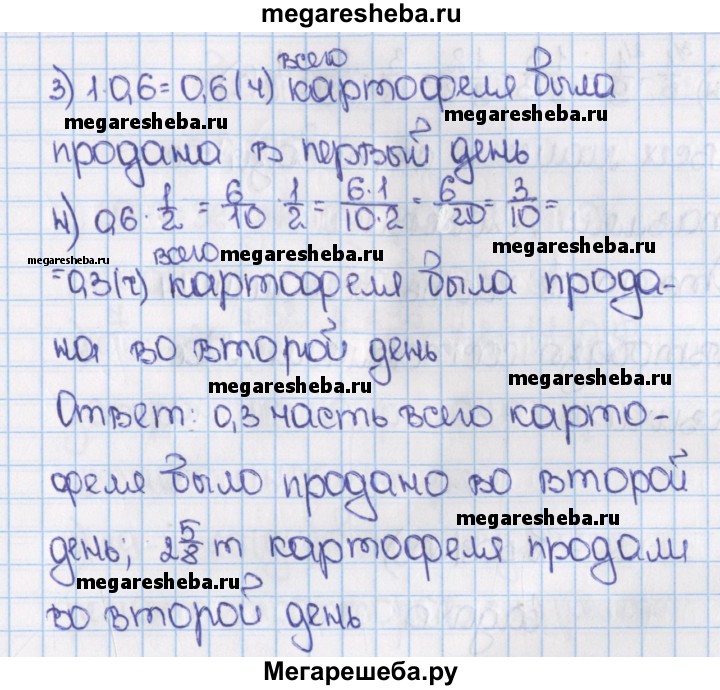 megaresheba.ru
3) 1·0,6=0,6(ч) всего картофеля была
megaresheba.ru megaresheba.ru
продана в первый день
4) 0,6·1/2=6/10·1/2=6·1/10·2=6/20=3/10=
megaresheba.ru megaresheba.ru megaresheba.ru
=0,3(ч) всего картофеля была прода-
на во второй день
megaresheba.ru megaresheba.ru
Ответ: 0,3 часть всего карто-
феля было продано во второй
megaresheba.ru
день; 2 5/8 т картофеля продали
megaresheba.ru
во второй день
Мегарешеба.ру